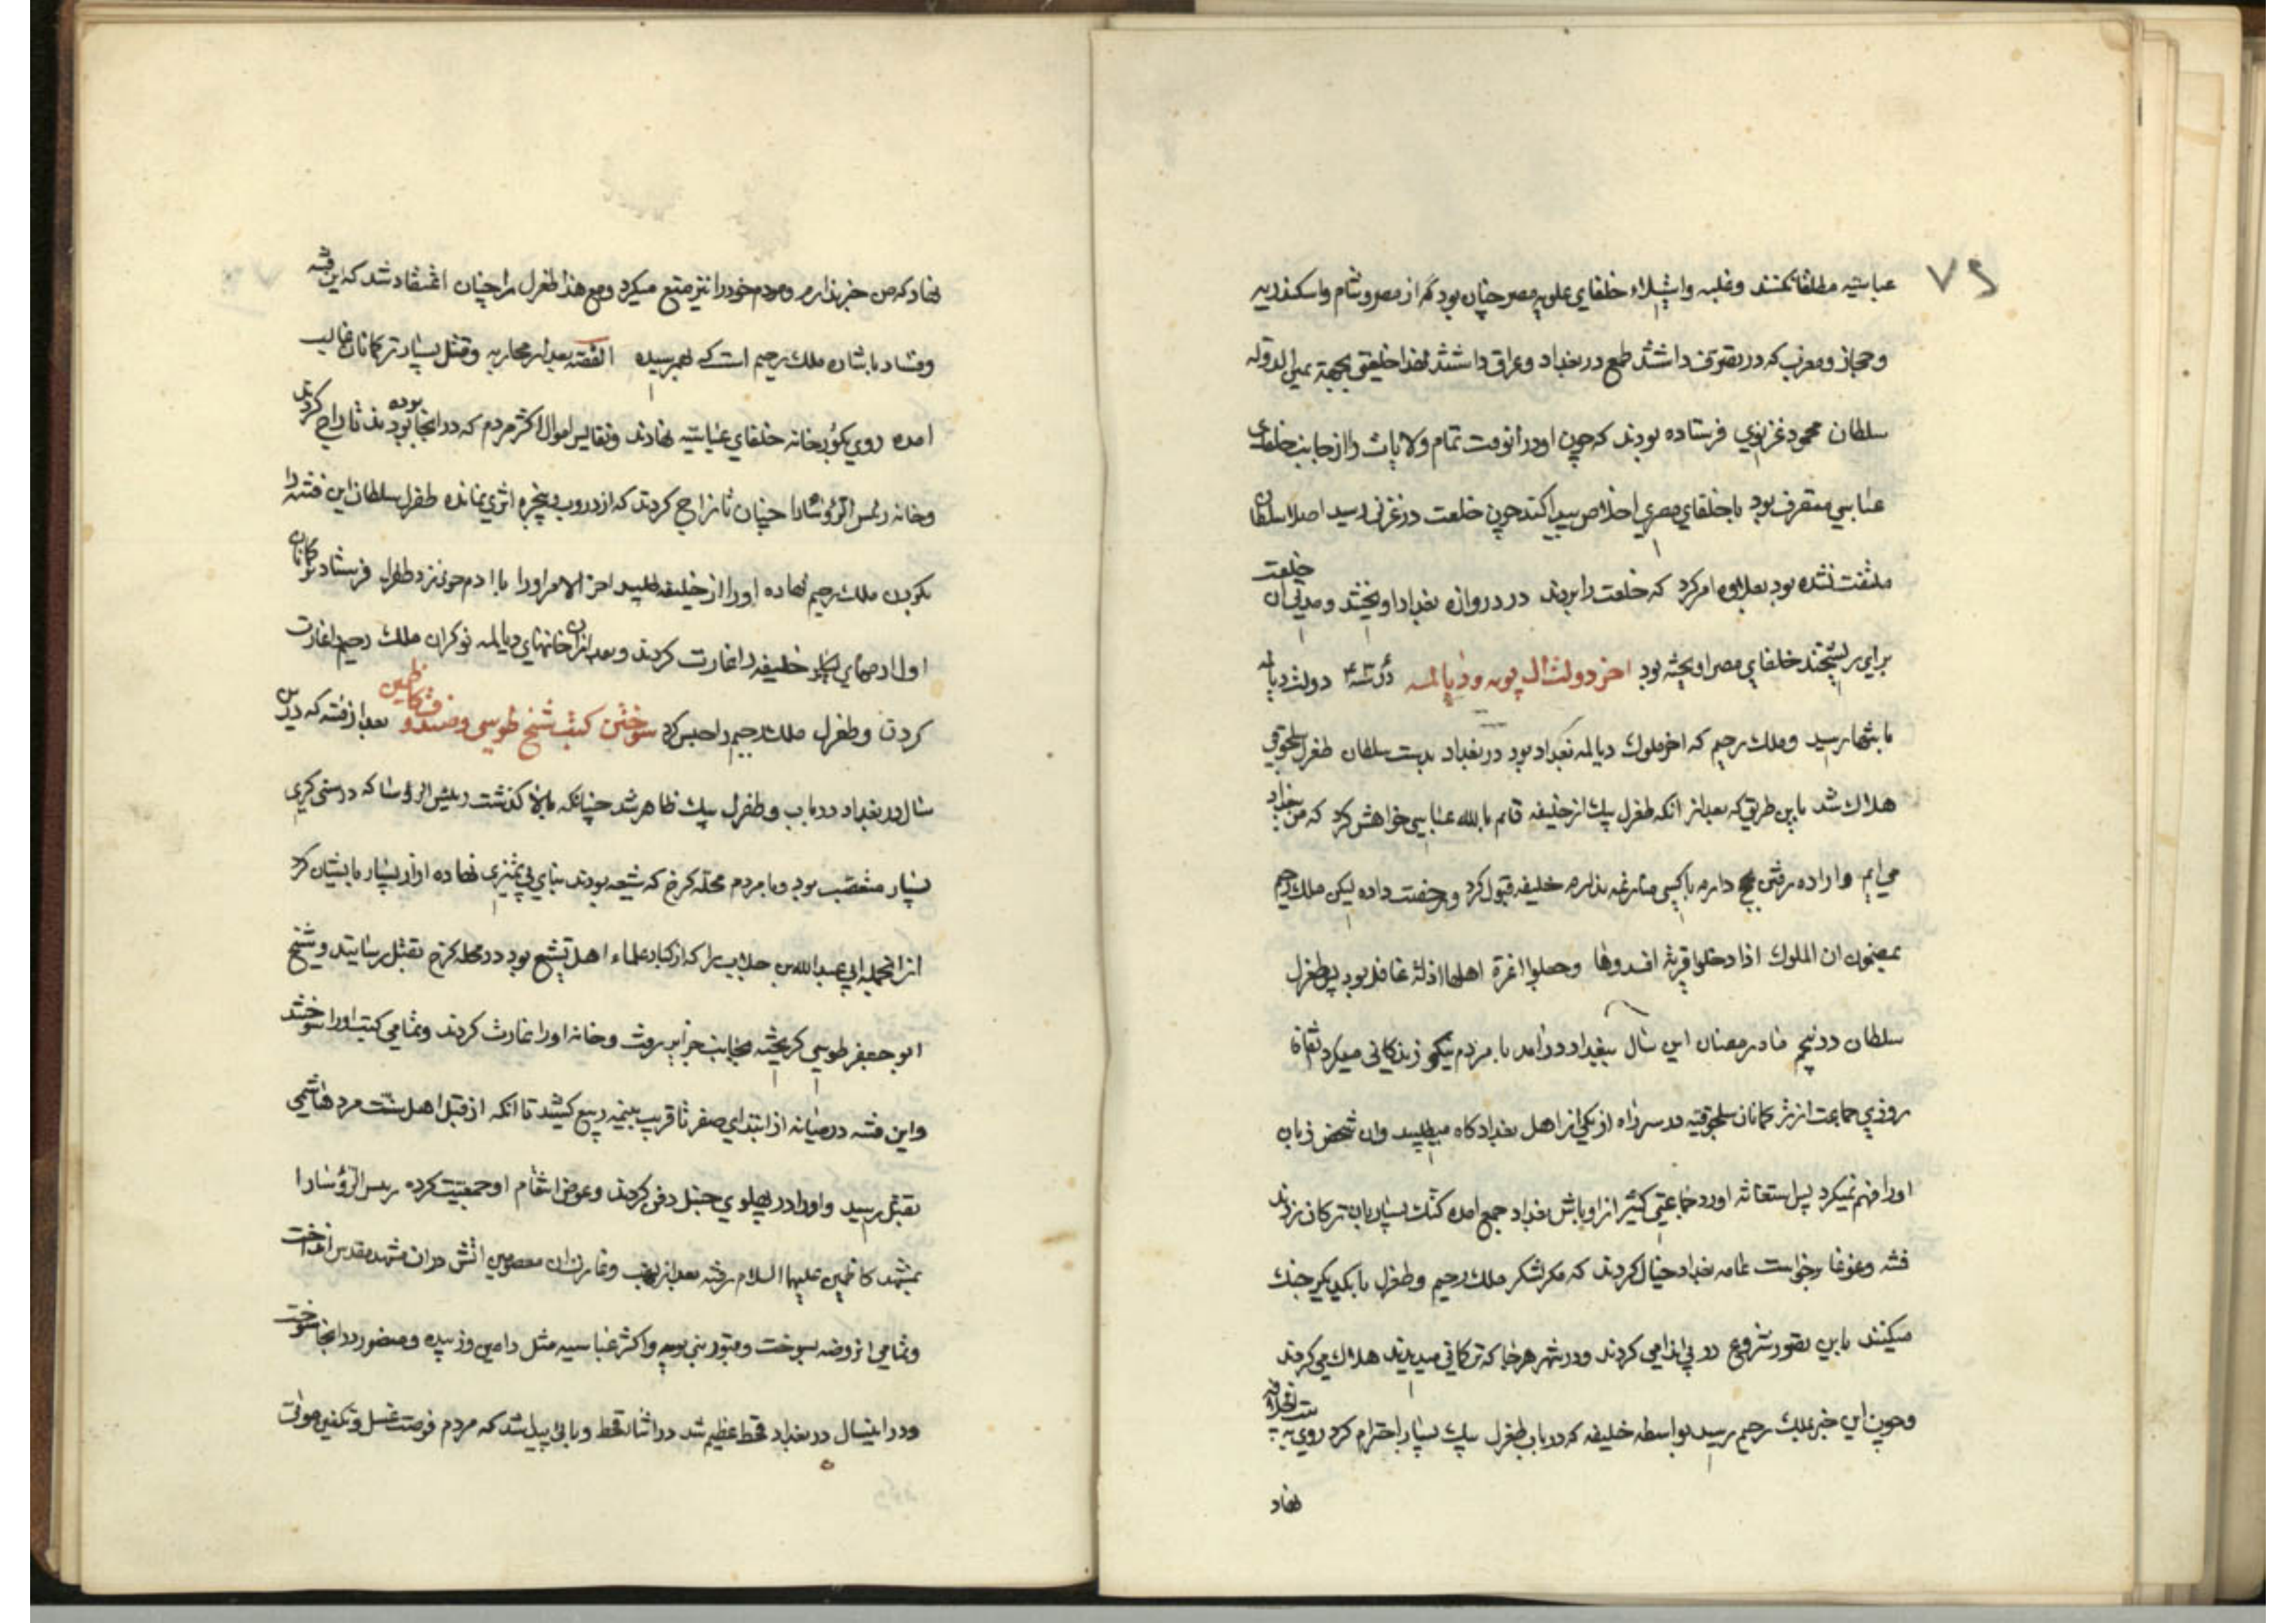 ۷۹
عباسیه مطلقا نکنند وغلبه واستیلاء خلفای علویه مصر چنان بود که از مصر وشام واسکندریه
وحجاز ومغرب که در تصرف داشتند طمع در بغداد وعراق داشتند لهذا خلعتی بجهة یمین الدوله
سلطان محمود غزنوی فرستاده بودند که چون او در آنوقت تمام ولایات را از جانب خلفای
عباسی متصرف بود با خلفای مصری اخلاص پیدا کند چون خلعت در غزنی رسید اصلا سلطان
ملتفت نشده بود بعلاوه امر کرد که خلعت را بردند در دروازه بغداد آویختند ومدتی آن خلعت
برای ریشخند خلفای مصر آویخته بود اخر دولت ال بویه ودیالمه دولت دیالمه
بانتها رسید وملک رحیم که اخر ملوک دیالمه بغداد بود در بغداد بدست سلطان طغرل سلجوقی
هلاک شد باین طریق که بعد از آنکه طغرل بیک از خلیفه قایم بالله عباسی خواهش کرد که من بغداد
می ایم واراده رفتن حج دارم با کسی منازعه ندارم خلیفه قبول کرد ورخصت داده لیکن ملک رحیم
بمضمون ان الملوک اذا دخلوا قریة افسدوها وجعلوا اعزة اهلها اذلة غافل بود پس طغرل
سلطان در پنجم ماه رمضان این سال ببغداد در آمد با مردم نیکو زندکانی میکرد اتفاقا
روزی جماعت از ترکمانان سلجوقیه در سر راه از یکی از اهل بغداد کاه میطلبید وان شخص زبان
اورا فهم نمیکرد پس استغاثه آورد جماعتی کثیر از اوباش بغداد جمع امده کتک بسیار بان ترکان زدند
فتنه وغوغا برخواست عامه بغداد خیال کردند که مکر لشکر ملک رحیم وطغرل با یکدیکر جنک
میکنند باین تصور شروع در بی اندامی کردند ودر شهر هرجا که ترکانی میدیدند هلاک می کردند
وچون این خبر بملک رحیم رسید بواسطه خلیفه که در باب طغرل بیک بسیار احترام کرد روی به بیت الخلافه
نهاد
نهاد که من خبر ندارم ومردم خود را نیز منع میکرد ومع هذا طغرل را چنان اعتقاد شد که این فتنه
وفساد باشاره ملک رحیم است که بهم رسیده القصه بعد از محاربه وقتل بسیار ترکمانان غالب
امده روی بکورخانه خلفای عباسیه نهادند ونفایس اموال اکثر مردم که در انجا بوده بودند تاراج کردند
وخانه رئیس الرؤسا را چنان تاراج کردند که از در وب وپنجره اثری نمانده طغرل سلطان این فتنه را
بکردن ملک رحیم نهاده اورا از خلیفه طلبید اخر الامر اورا با ادم خود نزد طغرل فرستاد ترکمانان
اول ادمهای خلیفه را غارت کردند وبعد از ان خانهای دیالمه نوکران ملک رحیم را غارت
کردن وطغرل ملک رحیم را حبس کرد سوختن کتب شیخ طوسی وصندوق کاظمین بعد از فتنه که درین
سال در بغداد در باب وطغرل بیک ظاهر شد چنانکه بالا کذشت رئیس الرؤسا که در سنی کری
بسیار متعصب بود وبا مردم محله کرخ که شیعه بودند بنای بی تمیزی نهاده ازار بسیار بایشان کرد
از انجمله ابی عبدالله بن جلاب را که از کبار علماء اهل تشیع بود در محله کرخ بقتل رسانیدند وشیخ
ابو جعفر طوسی کریخته بجانب حرایر رفت وخانه اورا غارت کردند وتمامی کتب اورا سوختند
واین فتنه در میانه از ابتدای صفر تا قریب بنیمه ربیع کشید تا انکه از قبل اهل سنت مرد هاشمی
بقتل رسید واورا در پهلوی حنبل دفن کردند وعوض انتقام او جمعیت کرده رییس الرؤسا را
بمشهد کاظمین علیهما السلام رفته بعد از نهب وغارت ان معصومین اتش در ان مشهد مقدس انداخت
وتمامی ان روضه بسوخت وقبور بنی بویه واکثر عباسیه مثل دامین وزبیده ومنصور در انجا سوخت
ودر اینسال در بغداد قحط عظیم شد در اثناء قحط وبائی پیدا شد که مردم فرصت غسل وتکفین موتی